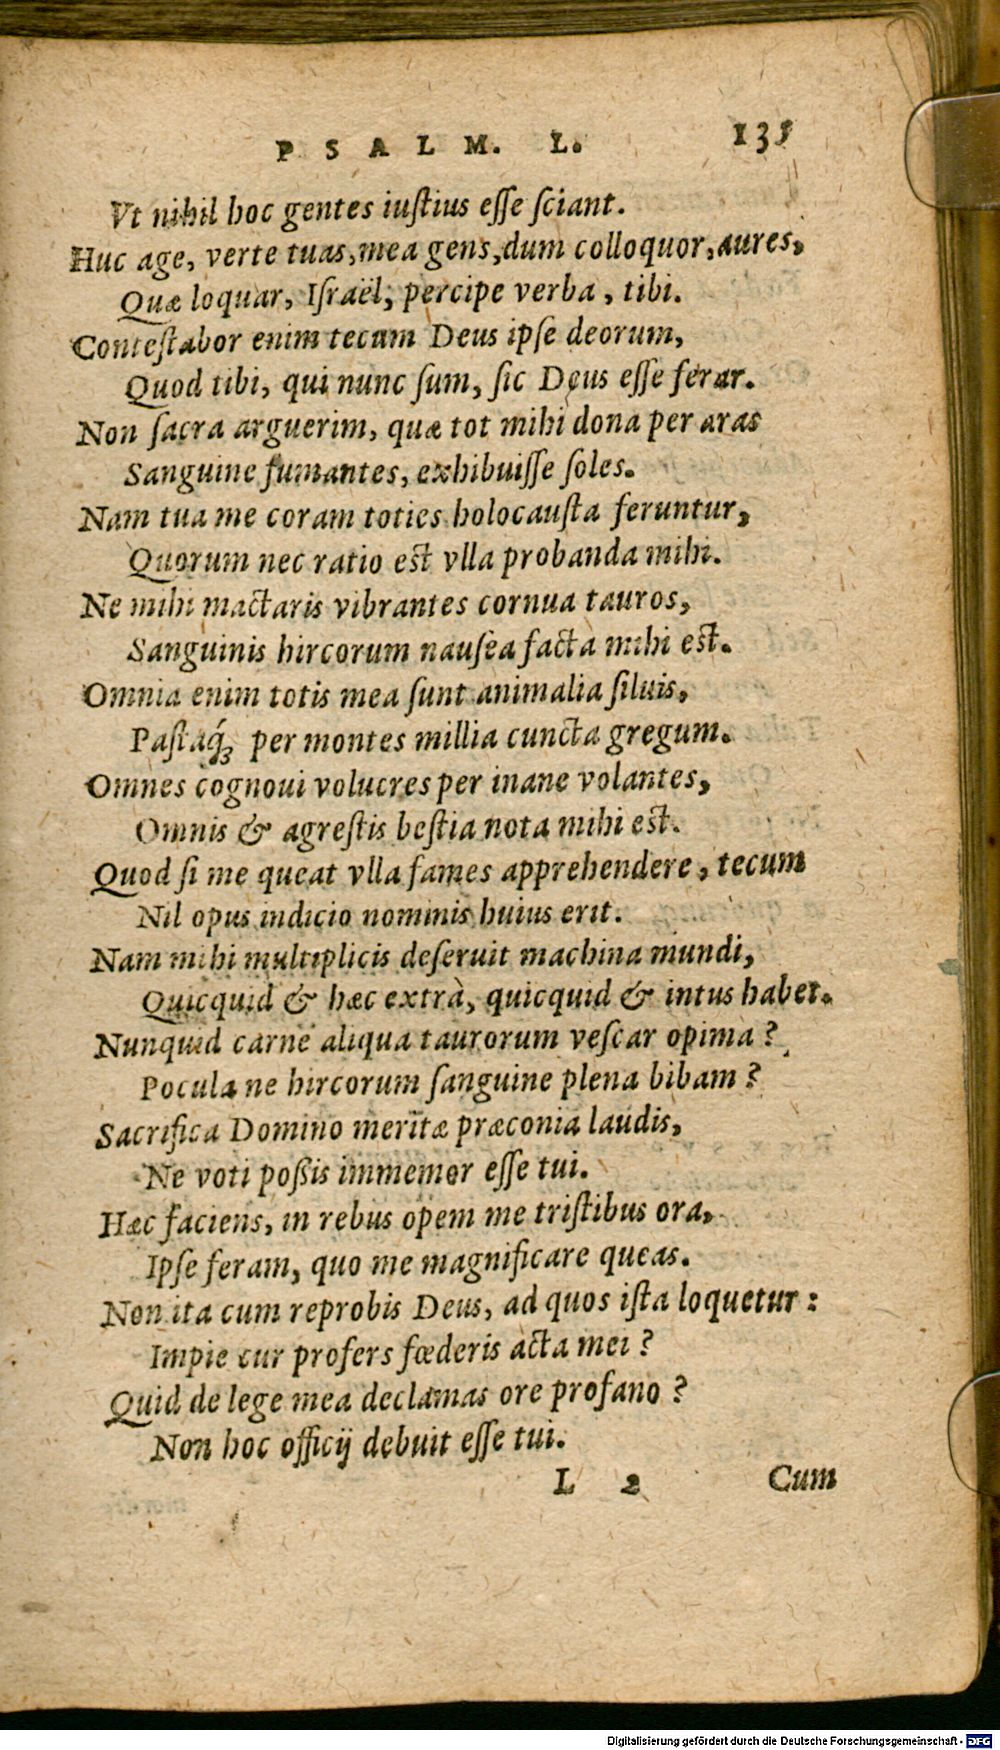 PSALM. L. 135
Vt nihil hoc gentes iuſtius eſſe ſciant.
Huc age, verte tuas, mea gens, dum colloquor, aures,
Quæ loquar, Iſraël, percipe verba, tibi.
Conteſtabor enim tecum Deus ipſe deorum,
Quod tibi, qui nunc ſum, ſic Deus eſſe ferar.
Non ſacra arguerim, quæ tot mihi dona per aras
Sanguine fumantes, exhibuiſſe ſoles.
Nam tua me coram toties holocauſta feruntur,
Quorum nec ratio eſt vlla probanda mihi.
Ne mihi mactaris vibrantes cornua tauros,
Sanguinis hircorum nauſea facta mihi eſt.
Omnia enim totis mea ſunt animalia ſiluis,
Paſtaq́ꝫ per montes millia cuncta gregum.
Omnes cognoui volucres per inane volantes,
Omnis & agreſtis beſtia nota mihi eſt.
Quod ſi me queat vlla fames apprehendere, tecum
Nil opus indicio nominis huius erit.
Nam mihi multiplicis deſeruit machina mundi,
Quicquid & hæc extrà, quicquid & intus habet.
Nunquid carne aliqua taurorum veſcar opima?
Pocula ne hircorum ſanguine plena bibam?
Sacrifica Domino meritæ præconia laudis,
Ne voti poßis immemor eſſe tui.
Hæc faciens, in rebus opem me triſtibus ora,
Ipſe feram, quo me magnificare queas.
Non ita cum reprobis Deus, ad quos iſta loquetur:
Impie cur profers fœderis acta mei?
Quid de lege mea declamas ore profano?
Non hoc officij debuit eſſe tui.
L 2 Cum
Digitalisierung gefördert durch die Deutsche Forschungsgemeinschaft - DFG